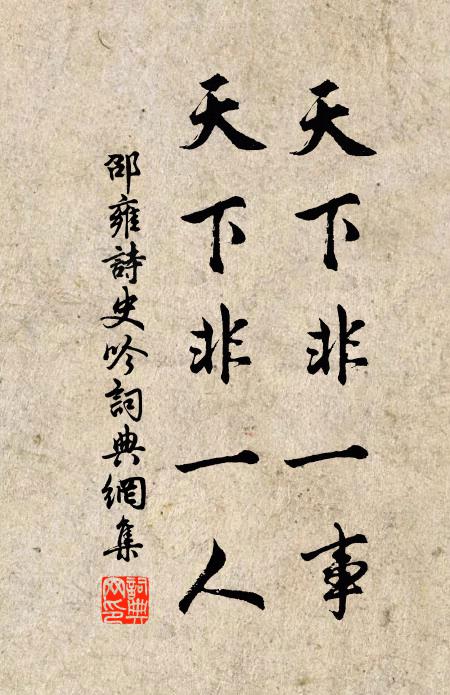 天下非一事
天下非一人
邵雍詩史吟詞典網集
詞典
网印